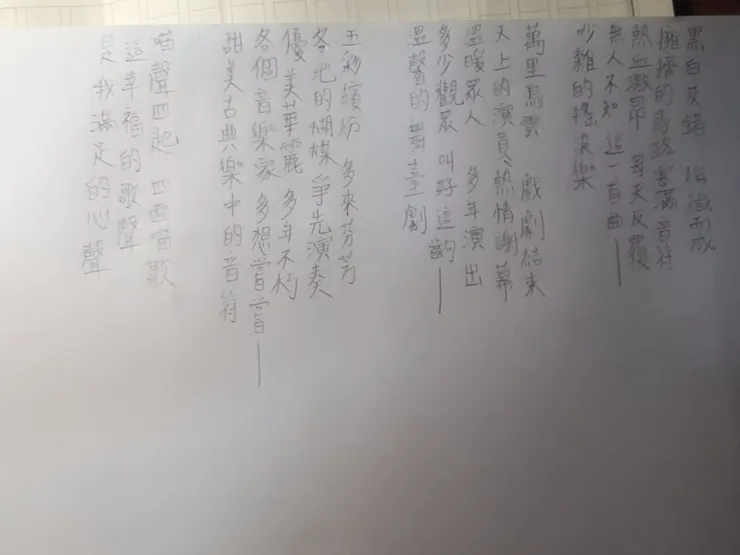 黑白交錯 編織而成
擁擠的馬路塞滿音符
熱血激昂 每天反覆
無人不知 這一首曲—
吵雜的搖滾樂
萬里烏雲 戲劇結束
天上的演員 熱情謝幕
溫暖眾人 多年演出
多少觀眾 叫好這齣—
溫馨的舞臺劇
五彩繽紛 多來芬芳
各地的蝴蝶爭先演奏
優美華麗 多年不朽
各個音樂家 多想嘗嘗—
甜美古典樂中的音符
喵聲四起 四面笛歌
這幸福的歌聲
是我滿足的心聲